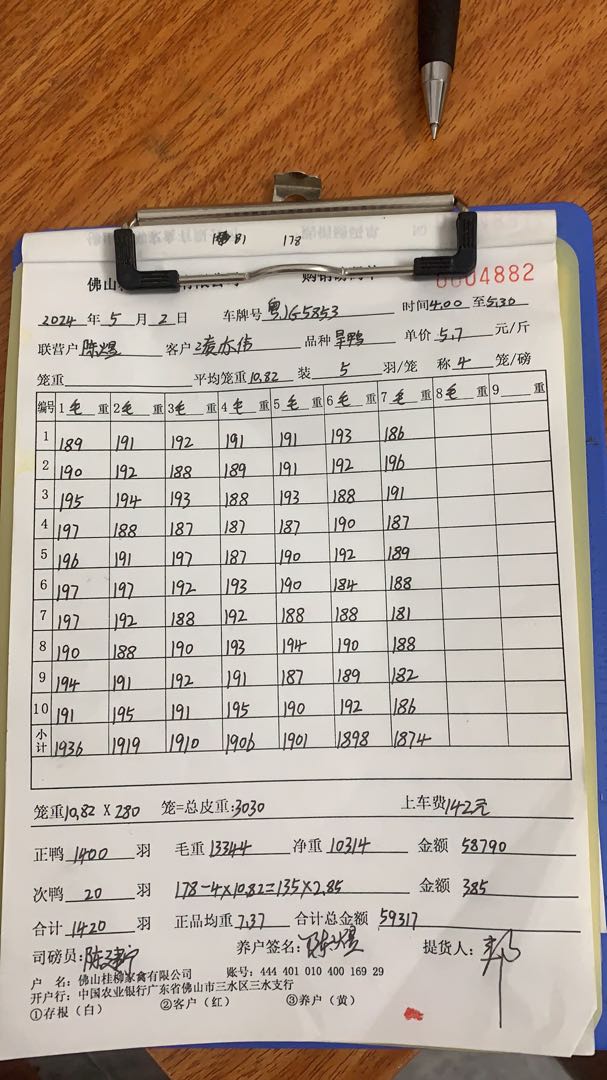 178
佛山
0004882
2024 年 5 月 2 日 车牌号 粤JG5853 时间 4.00 至 5.30
联营户 陈煜 客户 凌水伟 品种 旱鸭 单价 5.7 元/斤
笼重 平均笼重 10.82 装 5 羽/笼 称 4 笼/磅
编号 1 毛 重 2 毛 重 3 毛 重 4 毛 重 5 毛 重 6 毛 重 7 毛 重 8 毛 重 9 重
1 189 191 192 191 191 193 186
2 190 192 188 189 191 192 196
3 195 194 193 188 193 188 191
4 197 188 187 187 187 190 187
5 196 191 197 187 190 192 189
6 197 197 192 193 190 184 188
7 197 192 188 192 188 188 181
8 190 188 190 193 194 190 188
9 194 191 192 191 187 189 182
10 191 195 191 195 190 192 186
小计 1936 1919 1910 1906 1901 1898 1874
笼重 10.82 X 280 笼=总皮重:3030 上车费 142元
正鸭 1400 羽 毛重 13344 净重 10314 金额 58790
次鸭 20 羽 178-4×10.82=135×2.85 金额 385
合计 1420 羽 正品均重 7.37 合计总金额 59317
司磅员: 养户签名: 陈煜 提货人:
户 名: 佛山桂柳家禽有限公司 账号: 444 401 010 400 169 29
开户行: 中国农业银行广东省佛山市三水区三水支行
①存根(白) ②客户(红) ③养户(黄)